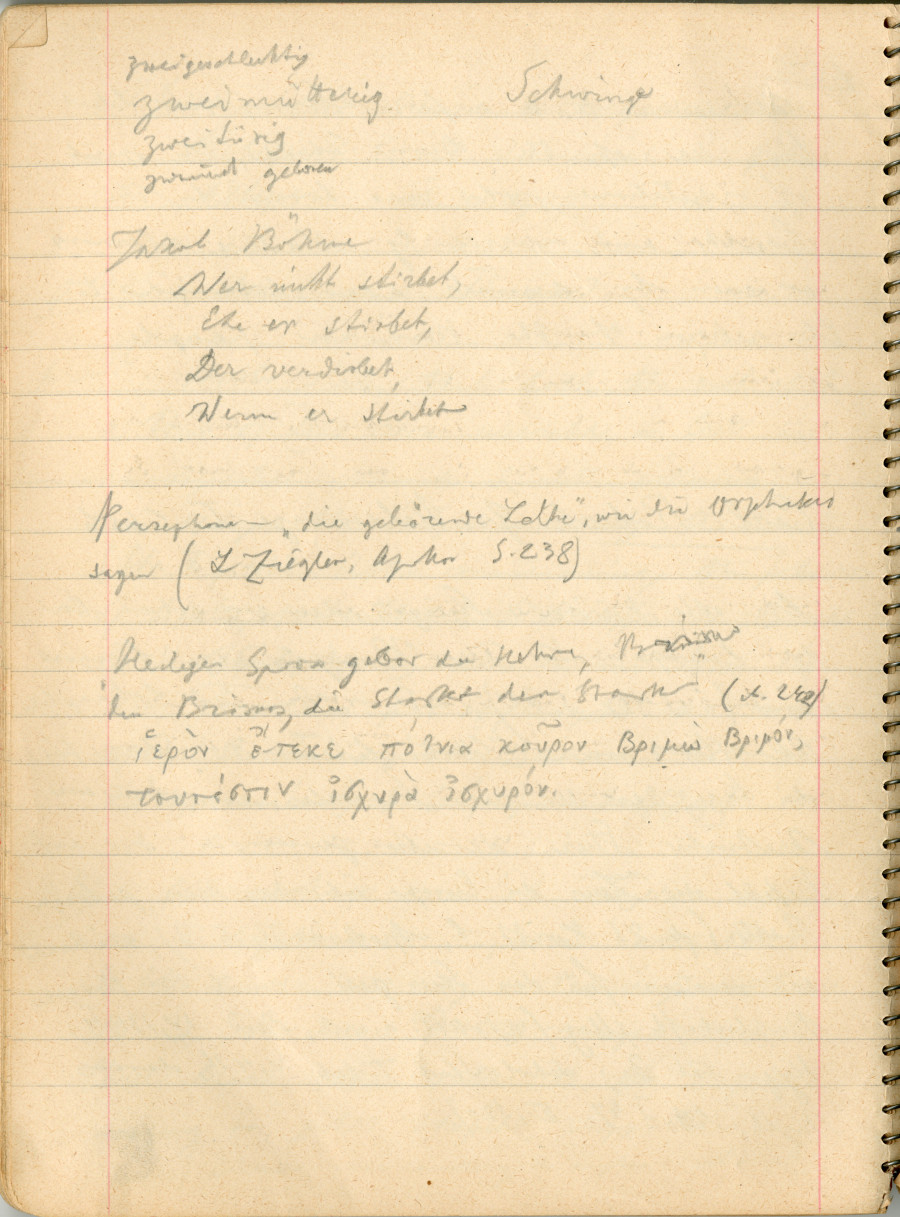 zweigeschlechtig
zweimütterig. Schwinge
zweitürig
zweimal geboren
Jakob Böhme
Wer nicht stirbet,
Ehe er stirbet,
Der verdirbet,
Wenn er stirbet
Persephone „die gebärende", wie die Orphiker
sagen (L Ziegler, Apokr S. 238)
Heiligen Spross gebar die Hehre,
den Brimos, die Starke den Starken
ἱερὸν ἔτεκε πότνια κοῦρον Βριμὼ Βριμόν,
τουτέστιν ἰσχυρὰ ἰσχυρόν.